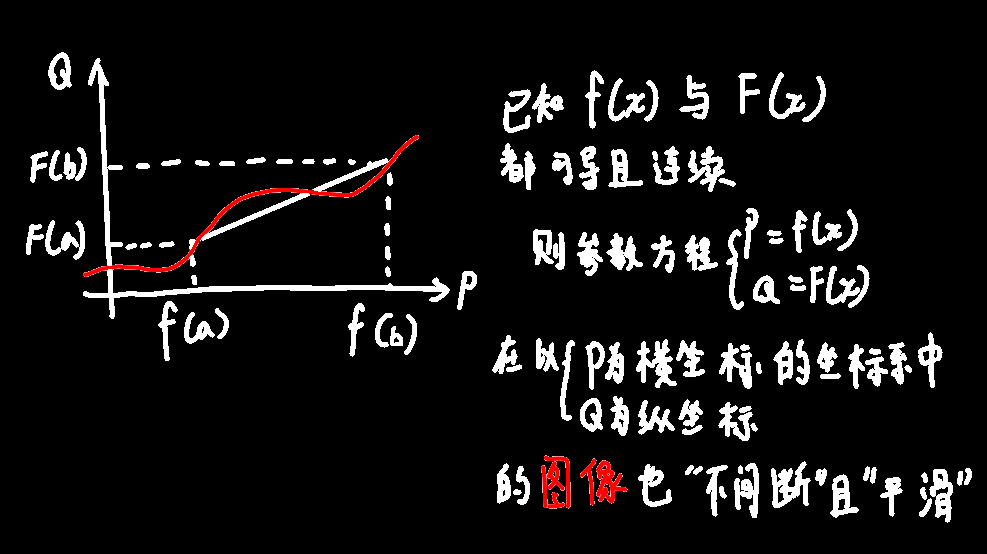 Q
F(b)
F(a)
f(a)
f(b)
P
已知 f(x) 与 F(x)
都可导且连续
则参数方程{P=f(x)
Q=F(x)
在以{P为横坐标的坐标系中
Q为纵坐标
的图像也“不间断”且“平滑”